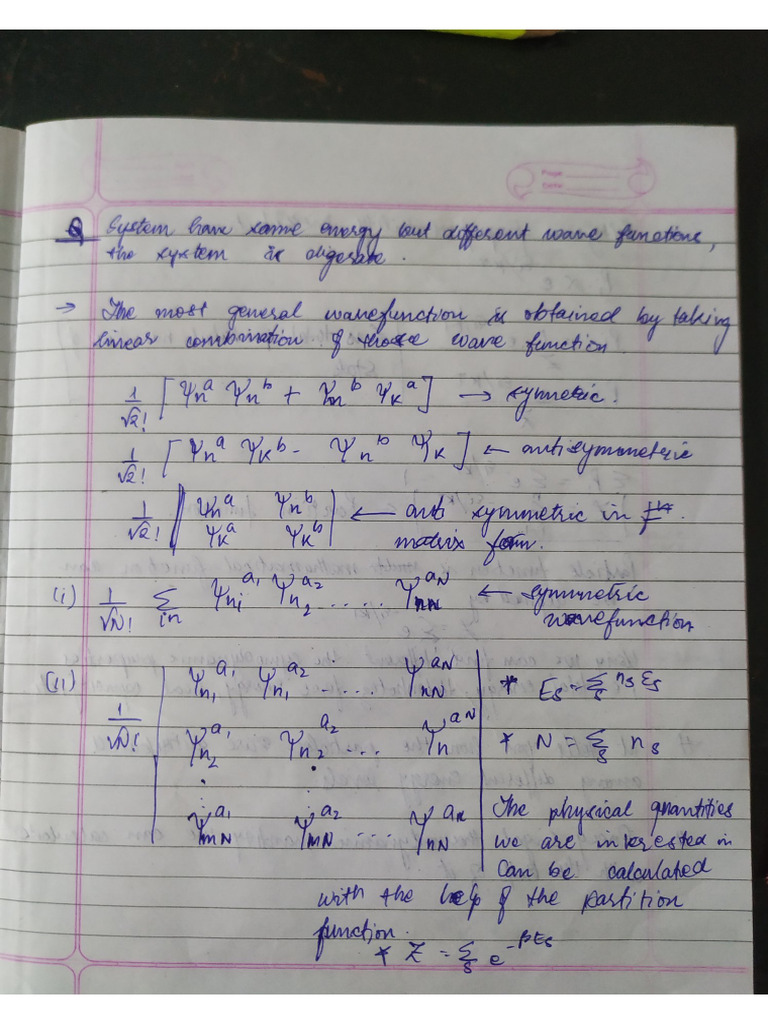 Q System have same energy but different wave functions,
the system is digerate.
→ The most general wavefunction is obtained by taking
linear combination of those wave function
1/√2! [ψn^a ψn^b + ψn^b ψk^a] → symmetric.
1/√2! [ψn^a ψk^b - ψn^b ψk] ← antisymmetric
1/√2! | ψn^a ψn^b | ← anti symmetric in
| ψk^a ψk^b | matrix form.
(i) 1/√N! Σ in ψni^a1 ψn2^a2 ..... ψnn^aN ← symmetric
wavefunction
(ii) 1/√N! | ψn1^a1 ψn1^a2 ..... ψnN^aN | * Es = Σs ns Es
| ψn2^a1 ψn2^a2 ... ψn^aN | * N = Σs ns
| ψmN^a1 ψmN^a2 ..... ψnN^an | The physical quantities
we are interested in
Can be calculated
with the help of the partition
function.
* Z = Σs e^-βEs